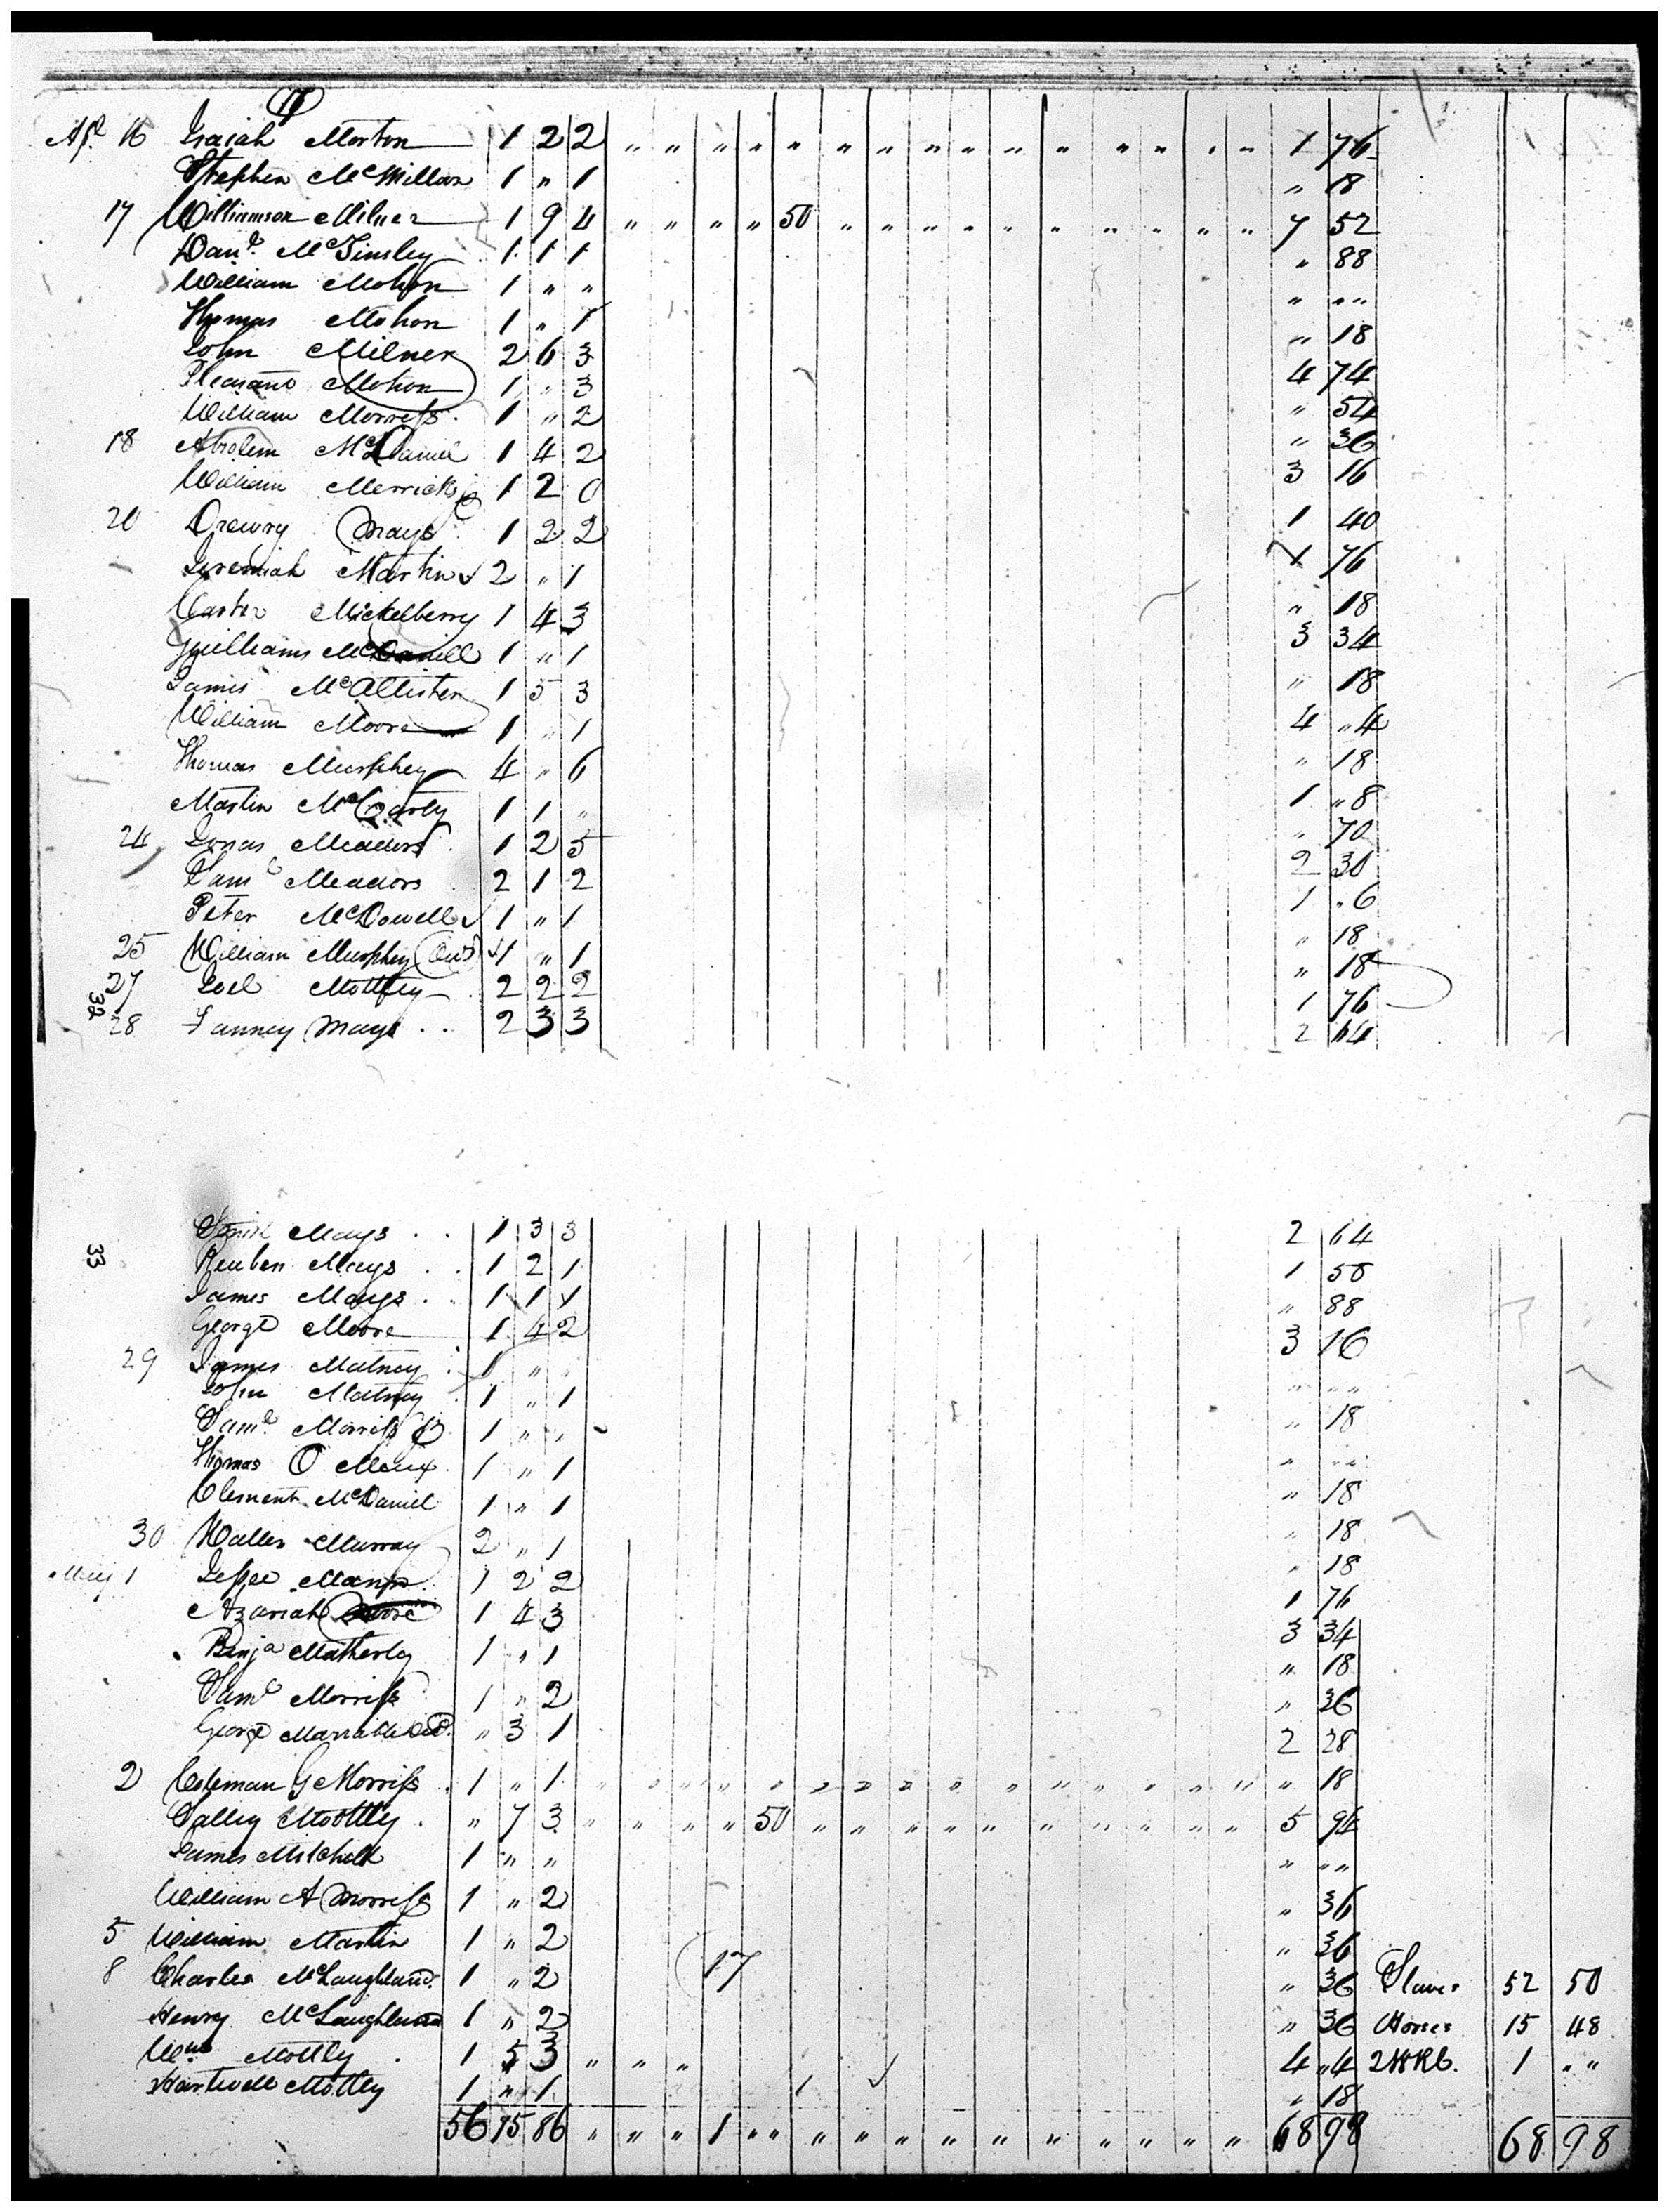 17
Apl 16 Isaiah Morton 1 2 2 " " " " " " " " " " " " " " " 1 76
Stephen McMillan 1 " 1 " 18
17 Williamson Milner 1 9 4 " " " " 50 " " " " " " " " " " 7 52
Danl. McGinsley 1 1 1 " 88
William Mohon 1 " " " " "
Thomas Mohon 1 " 1 " 18
John Milner 2 6 3 4 74
Pleasant Mohon 1 " 3 " 54
William Morress 1 " 2 " 36
18 Absolem McDaniel 1 4 2 3 16
William Merricks 1 2 0 1 40
20 Drewry Mays 1 2 2 1 76
Jeremiah Martin 2 " 1 " 18
Carter Mickelberry 1 4 3 3 34
Williams McDaniell 1 " 1 " 18
James McAllister 1 5 3 4 " 4
William Moore 1 " 1 " 18
Thomas Murphey 4 " 6 1 " 8
Martin McCarty 1 1 " " 70
24 Jonas Meadors 1 2 5 2 30
Saml Meadors 2 1 2 1 " 6
Peter McDowell 1 " 1 " 18
25 William Murphey 1 " 1 " 18
27 Joel Mottley 2 2 2 1 76
32
28 Fanney Mays . . 2 3 3 2 64
33
Mays . . 1 3 3 2 64
Reuben Mays . . 1 2 1 1 58
James Mays . . 1 1 1 " 88
George Moore 1 4 2 3 16
29 James Matney 1 " " " " "
John Matney 1 " 1 " 18
Saml. Morriss 1 " " " " "
Thomas O Meux 1 " 1 " 18
Clement McDaniel 1 " 1 " 18
30 Waller Murray 2 " 1 " 18
May 1 Jessee Mann 1 2 2 1 76
Azariah Moore 1 4 3 3 34
Benja Matherly 1 " 1 " 18
Saml Morriss 1 " 2 " 36
George Marrable Decd. " 3 1 2 28
2 Coleman G Morriss . 1 " 1 " " " " " " " " " " " " " " " " 18
Salley Mottley . " 7 3 " " " " 50 " " " " " " " " " " 5 94
James Mitchell 1 " " " " "
William A Morriss 1 " 2 " 36
5 William Martin 1 " 2 " 36
8 Charles McLaughland 1 " 2 17 " 36 Slaves 52 50
Henry McLaughland 1 " 2 " 36 Horses 15 48
Wm Mottley . 1 5 3 " " " 4 " 4 2 W Rb. 1 " "
Hartwell Mottley 1 " 1 " 18
56 75 86 " " " 1 " " " " " " " " " " " " 68 98 68 98